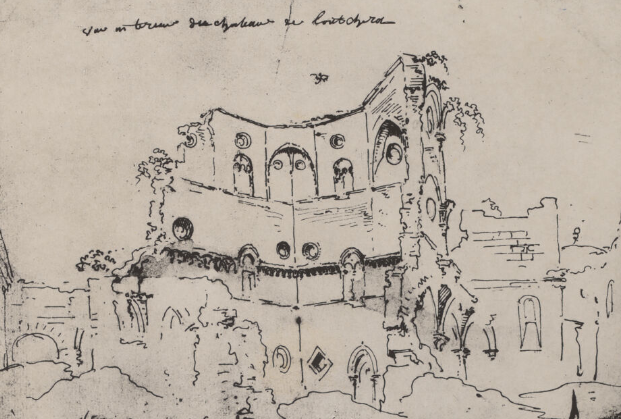 vue interieur du chateau de